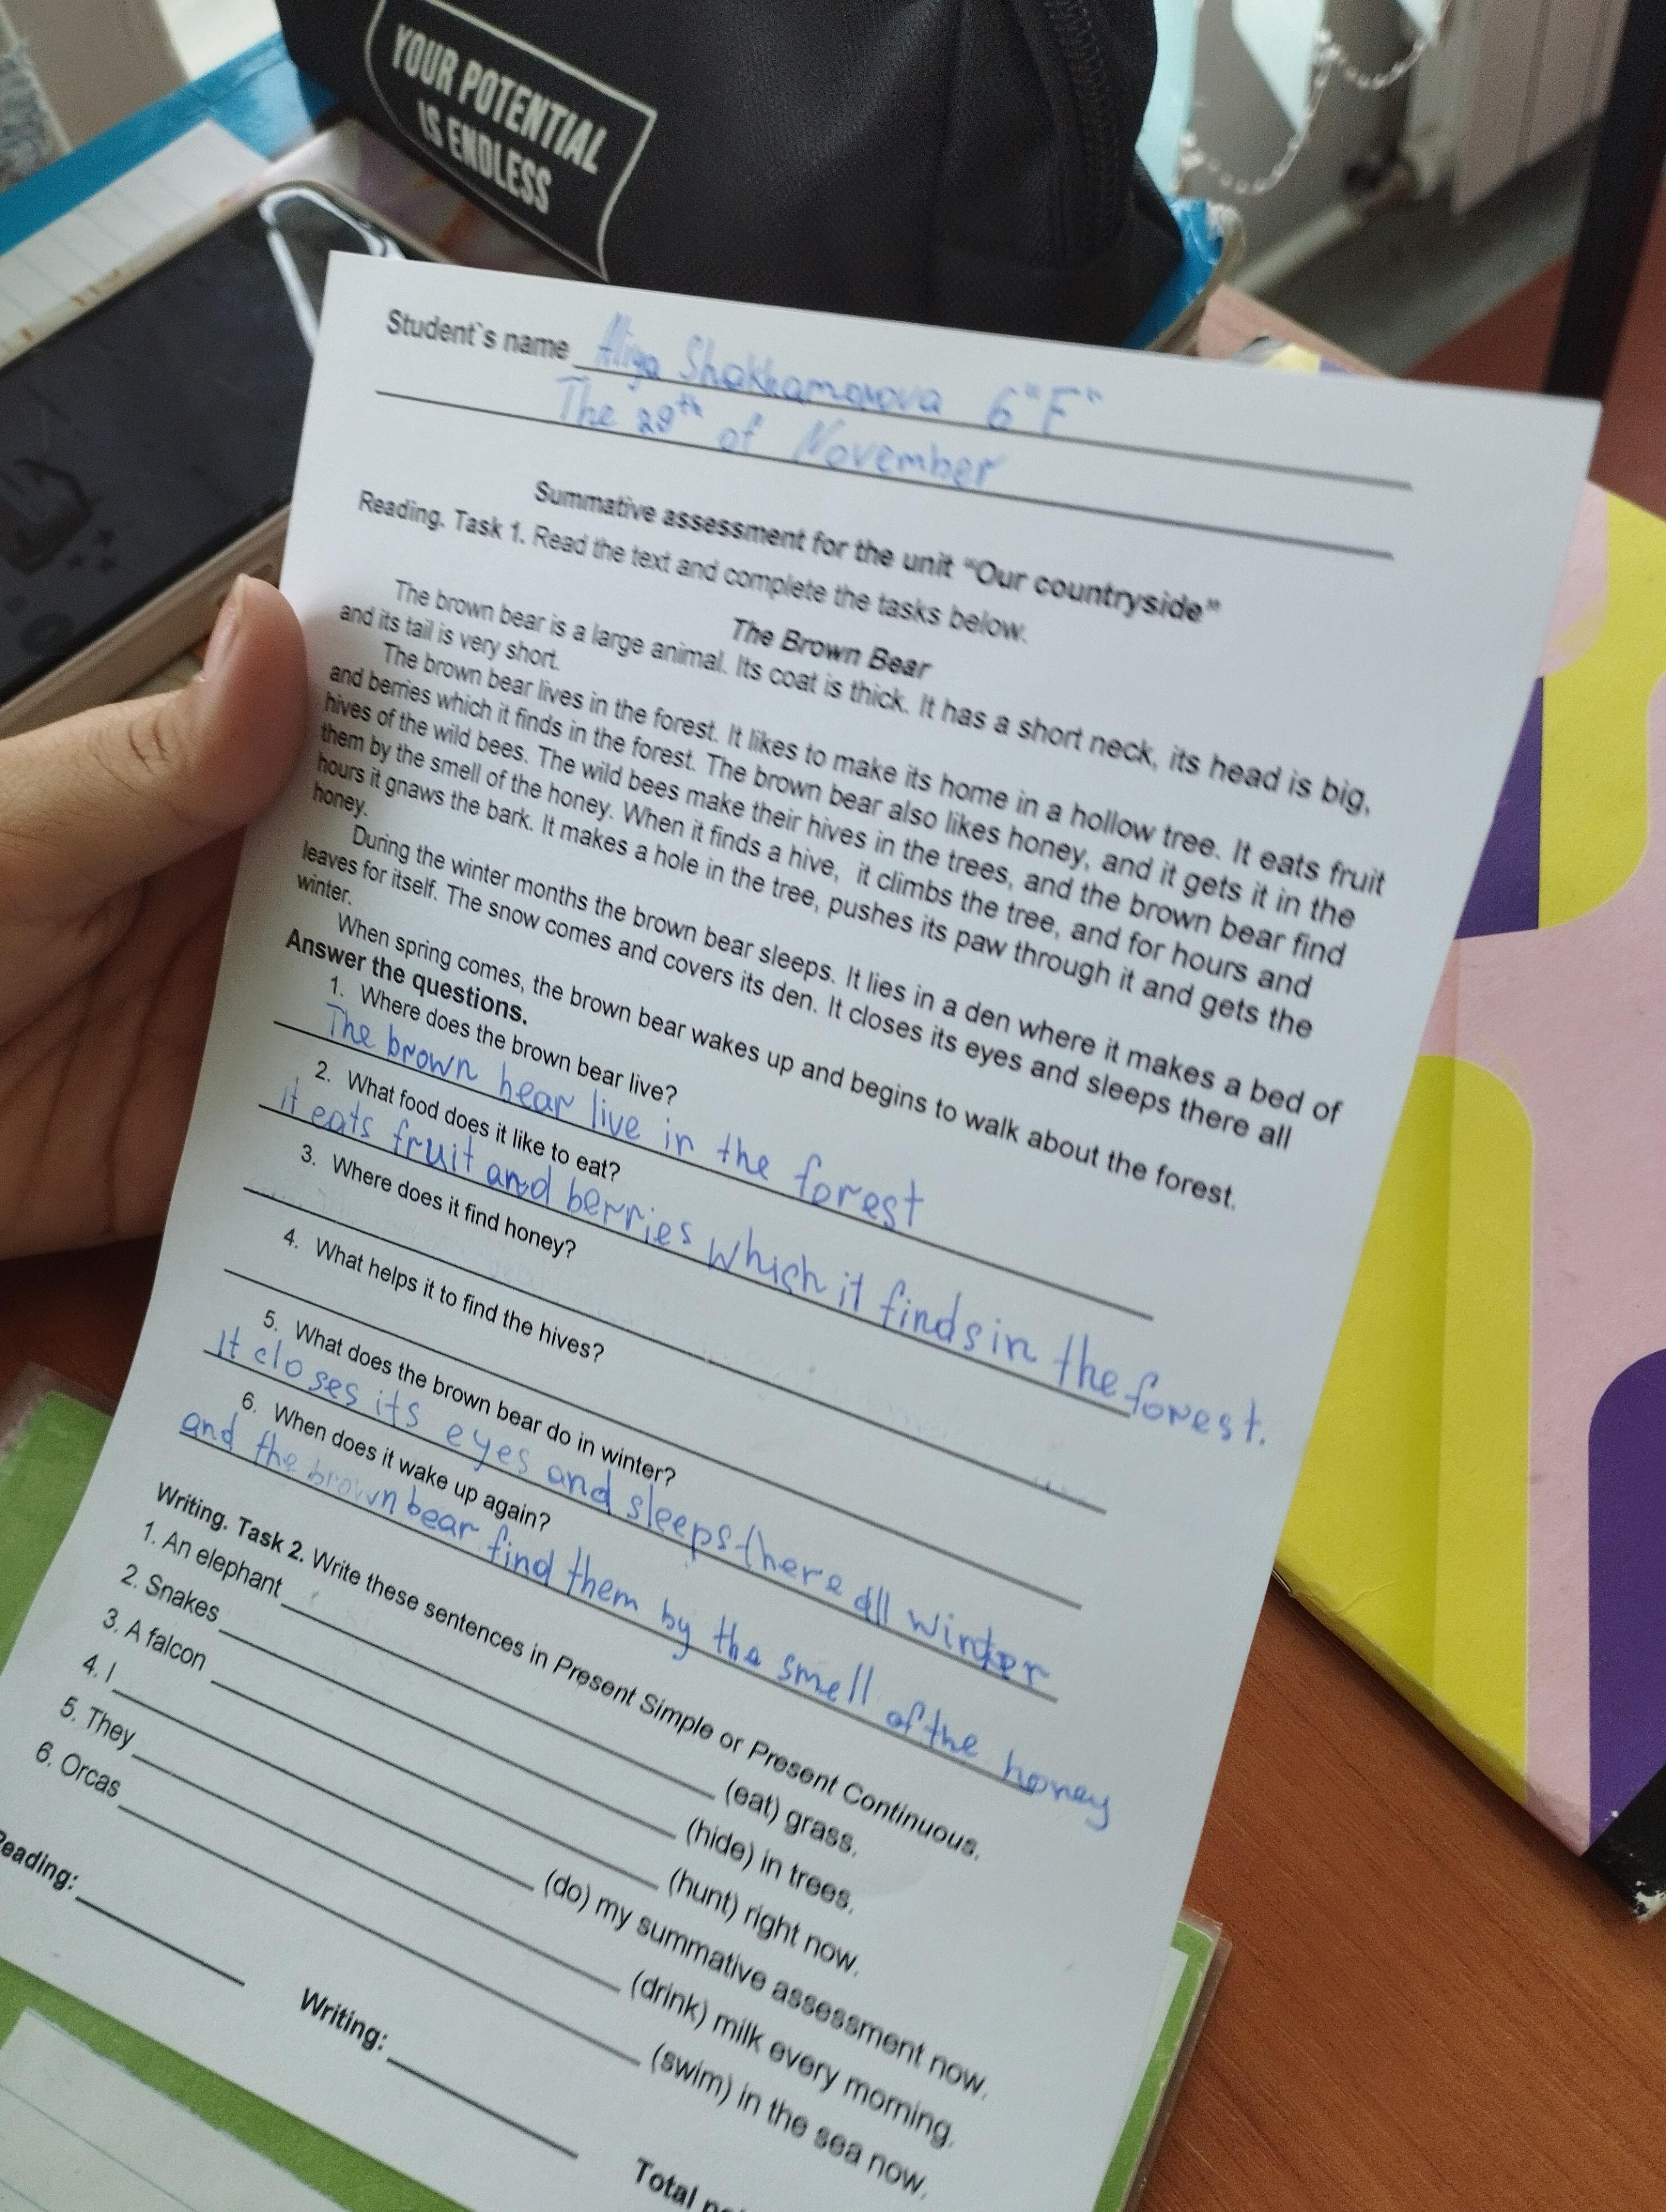 YOUR POTENTIAL
IS ENDLESS
Student`s name Aliya Shakhamorova 6"F"
The 29th of November
Summative assessment for the unit "Our countryside"
Reading. Task 1. Read the text and complete the tasks below.
The Brown Bear
The brown bear is a large animal. Its coat is thick. It has a short neck, its head is big,
and its tail is very short.
The brown bear lives in the forest. It likes to make its home in a hollow tree. It eats fruit
and berries which it finds in the forest. The brown bear also likes honey, and it gets it in the
hives of the wild bees. The wild bees make their hives in the trees, and the brown bear find
them by the smell of the honey. When it finds a hive, it climbs the tree, and for hours and
hours it gnaws the bark. It makes a hole in the tree, pushes its paw through it and gets the
honey.
During the winter months the brown bear sleeps. It lies in a den where it makes a bed of
leaves for itself. The snow comes and covers its den. It closes its eyes and sleeps there all
winter.
When spring comes, the brown bear wakes up and begins to walk about the forest.
Answer the questions.
1. Where does the brown bear live?
The brown bear live in the forest
2. What food does it like to eat?
it eats fruit and berries which it finds in the forest.
3. Where does it find honey?
4. What helps it to find the hives?
5. What does the brown bear do in winter?
It closes its eyes and sleeps there all winter
6. When does it wake up again?
and the brown bear find them by the smell of the honey
Writing. Task 2. Write these sentences in Present Simple or Present Continuous.
1. An elephant (eat) grass.
2. Snakes (hide) in trees.
3. A falcon (hunt) right now.
4. I (do) my summative assessment now.
5. They (drink) milk every morning.
6. Orcas (swim) in the sea now.
Reading: Writing: Total